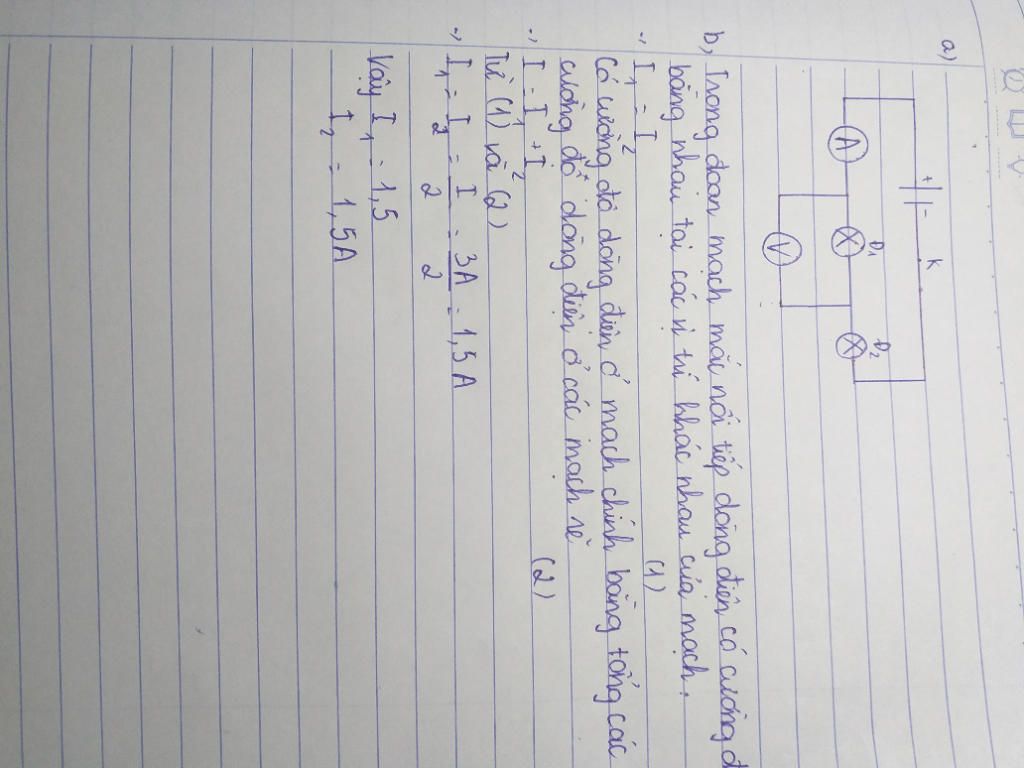 a)
+ -
K
A
Đ1
Đ2
V
b, Trong đoạn mạch mắc nối tiếp dòng điện có cường đ
bằng nhau tại các vị trí khác nhau của mạch.
→ I1 = I2 (1)
Có cường độ dòng điện ở mạch chính bằng tổng các
cường độ dòng điện ở các mạch rẽ
→ I = I1 + I2 (2)
Từ (1) và (2)
→ I1 = I2 = I/2 = 3A/2 = 1,5A
Vậy I1 = 1,5
I2 = 1,5A